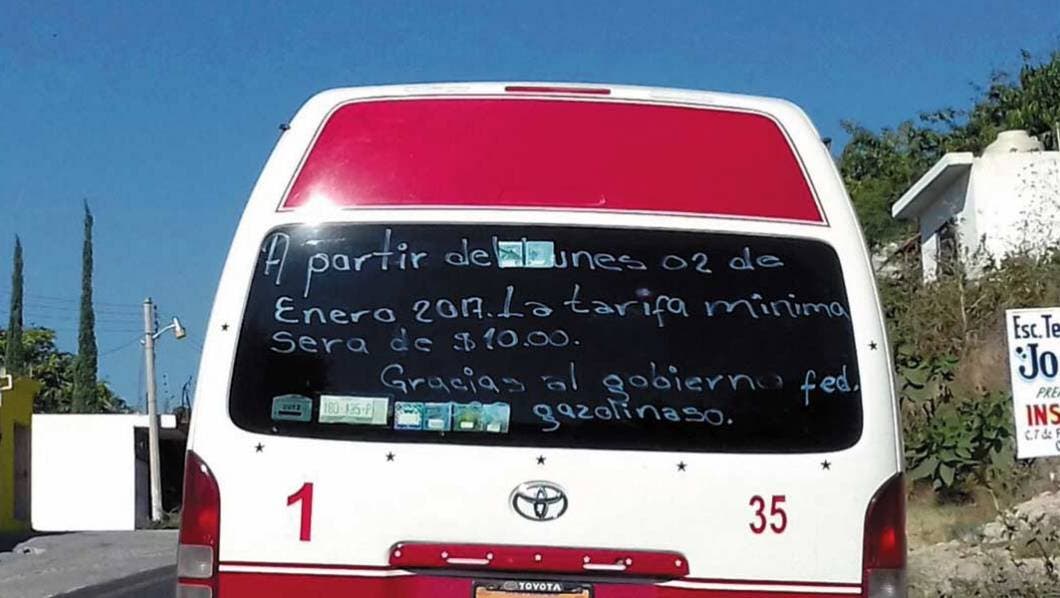 A partir del Lunes 02 de
Enero 2017. La tarifa minima
sera de $10.00.
Gracias al gobierno fed.
gazolinaso.
1
35
TOYOTA
Esc. Te
"Jo
PRE
INS
C.T de